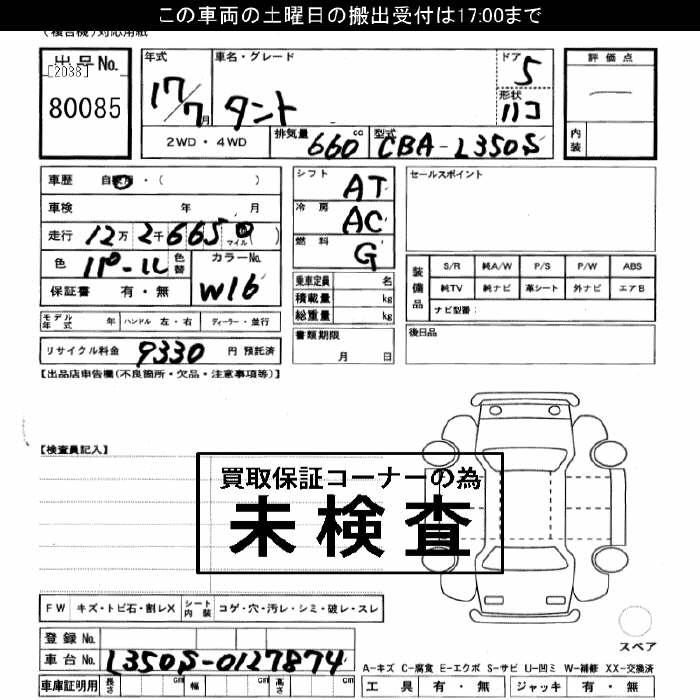 この車両の土曜日の搬出受付は17:00まで
(複合機)対応用紙
出品No.
[2038]
80085
年式
17/7月
車名・グレード
タント
ドア
5
形状
ハコ
評価点
内装
2WD・4WD
排気量
660 cc
型式
CBA-L350S
車歴 自家用・( )
車検 年 月
走行 12万2千6650 マイル( )
色 パール 色替
カラーNo.
W16
保証書 有・無
シフト AT
冷房 AC
燃料 G
乗車定員 名
積載量 kg
総重量 kg
セールスポイント
装備品
S/R 純A/W P/S P/W ABS
純TV 純ナビ 革シート 外ナビ エアB
ナビ型番:
モデル年式 年 ハンドル 左・右 ディーラー・並行
リサイクル料金 9330 円 預託済
書類期限
月 日
後日品
【出品店申告欄(不良箇所・欠品・注意事項等)】
【検査員記入】
買取保証コーナーの為
未検査
FW キズ・トビ石・割レX シート内装 コゲ・穴・汚レ・シミ・破レ・スレ
登録No.
車台No. L350S-0127874
車庫証明用 長さ cm 幅 cm 高さ cm
スペア
A-キズ C-腐食 E-エクボ S-サビ U-凹ミ W-補修 XX-交換済
工具 有・無 ジャッキ 有・無